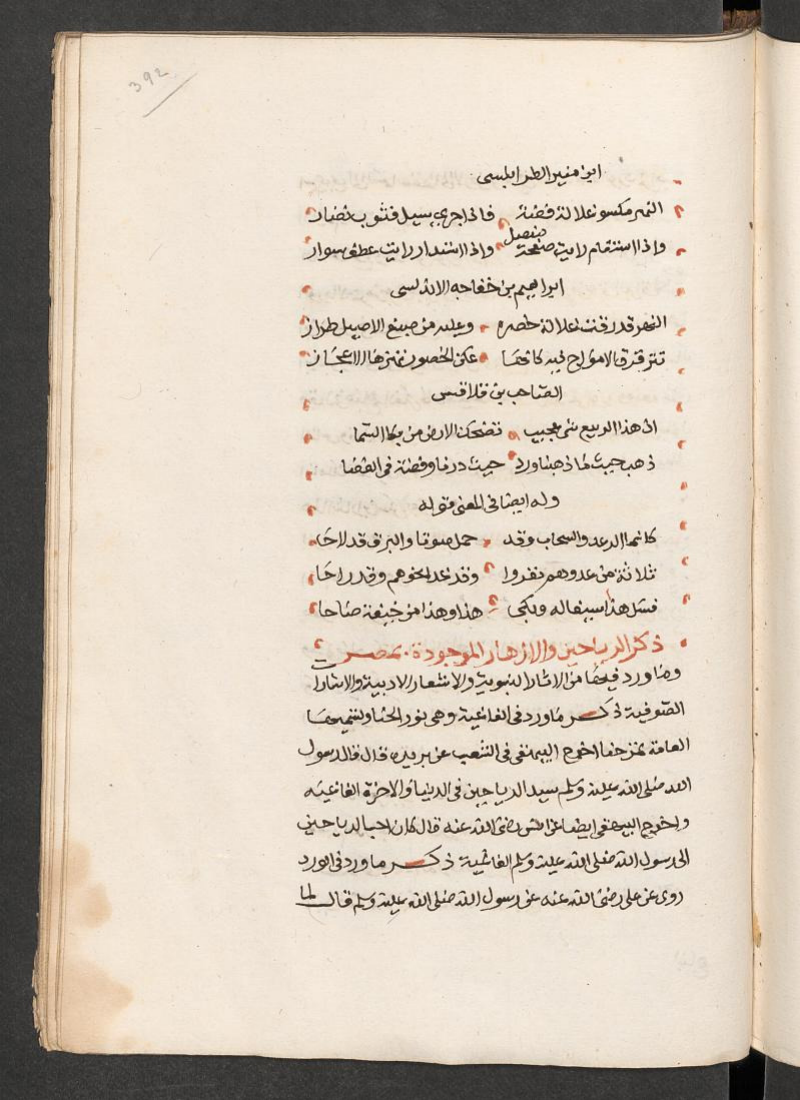 392
ابن منير الطرابلسى
النهر مكسو غلالة فضة فاذا جرى سيل فثوب نضار
واذا استقام رايت صفحة منصل واذا استدار رايت عطف سوار
ابراهيم بن خفاجه الاندلسى
النهر قد رقت غلالة خصره وعليه من صبغ الاصيل طراز
تترقرق الامواج فيه كانها عكن الخصور تهزها الاعجاز
الصاحب بن قلاقس
ان هذا الربيع شى عجيب تضحك الارض من بكا السما
ذهب حيث ما ذهبنا ورد حيث درنا وفضة فى الفضا
وله ايضا فى المعنى قوله
كانما الرعد والسحاب وقد حمل صوتا والبرق قد لاحا
ثلاثة من عدوهم نفروا وقد غدا نحوهم وقد راحا
فسل هذا سيفا له وبكى هذا وهذا من خيفة صاحا
ذكر الرياحين والازهار الموجودة بمصر
وما ورد فيها من الاثار النبوية والاشعار الادبية والاشارات
الصوفية ذكر ما ورد فى الفاغية وهى نور الحنا وتسميها
العامة تمرحنا اخرج البيهقى فى الشعب عن بريدة قال قال رسول
الله صلى الله عليه وسلم سيد الرياحين فى الدنيا والاخرة الفاغيه
واخرج البيهقى ايضا عن انس رضى الله عنه قال كان احب الرياحين
الى رسول الله صلى الله عليه وسلم الفاغية ذكر ما ورد فى الورد
روى عن على رضى الله عنه عن رسول الله صلى الله عليه وسلم قال لما